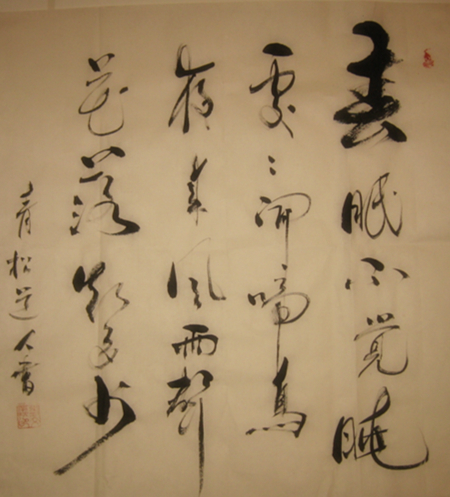 春眠不觉晓
处々闻啼鸟
夜来风雨声
花落知多少
青松道人书